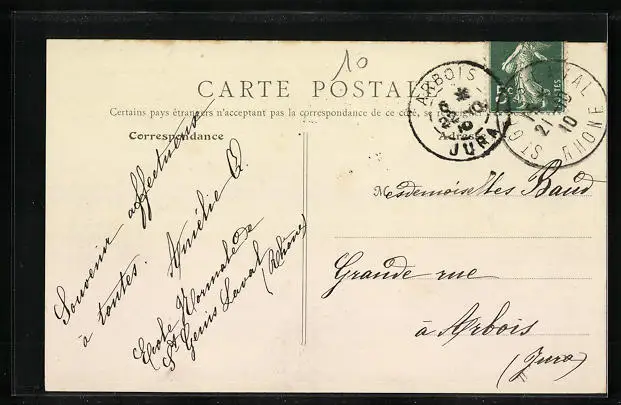 10
CARTE POSTALE
Certains pays étrangers n'acceptent pas la correspondance de ce côté, se
Correspondance
Adresse
ARBOIS
JURA
LAVAL
RHONE
21
10
5c
Souvenir affectueux
à toutes. Amélie Q.
Ecole Normale de
St Genis Laval
(Rhône)
Mesdemoiselles Baud
Grande rue
à Arbois
(Jura)